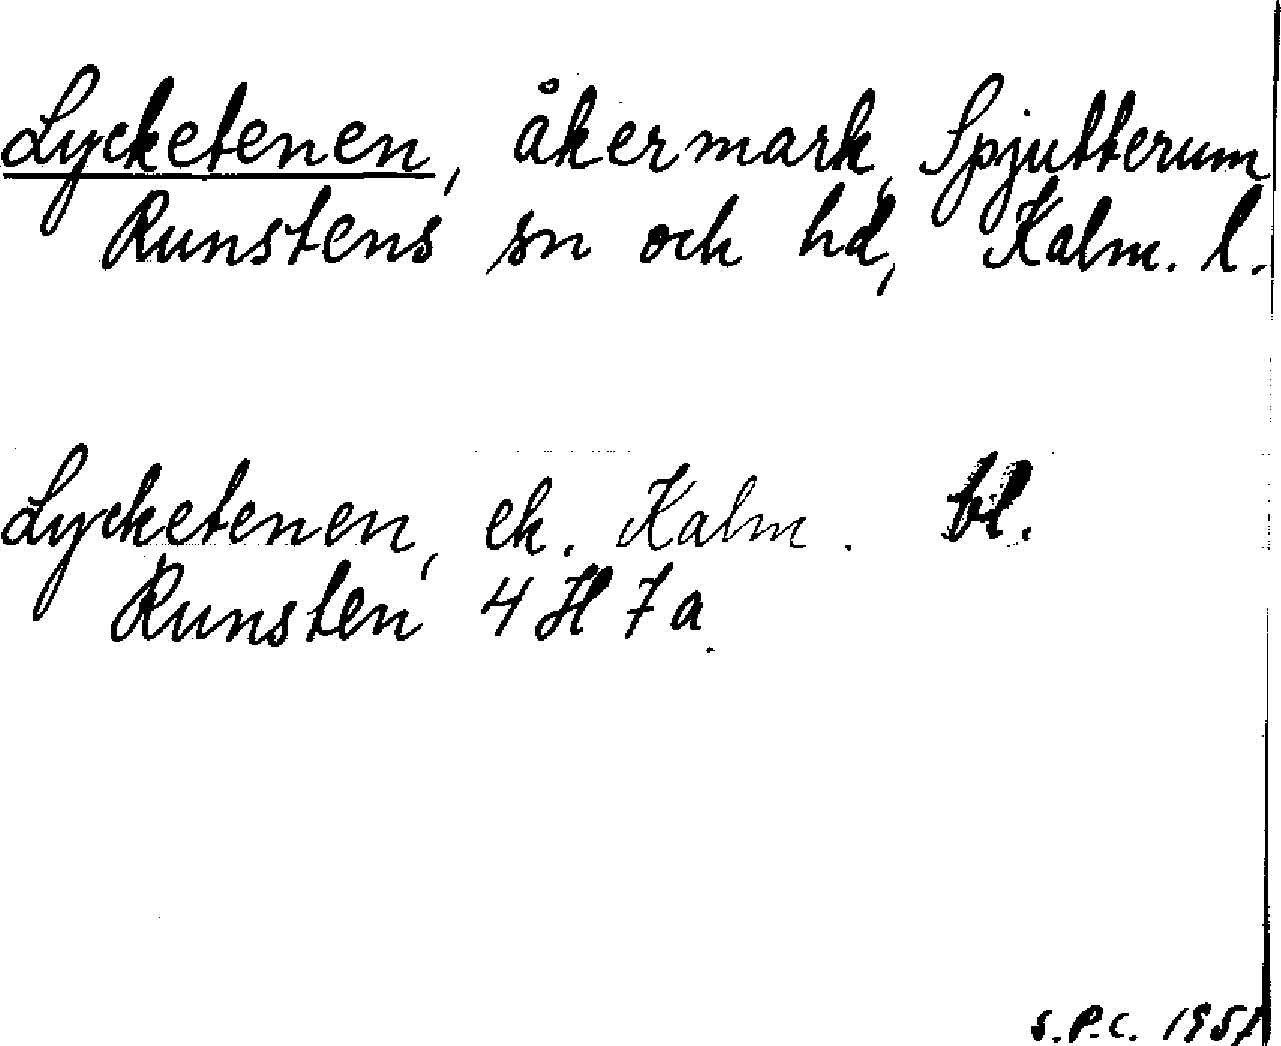 Lycketenen, åkermark, Spjutterum
Runstens sn och hd, Kalm. l.
Lycketenen, ek. Kalm. bl.
Runsten 4 H 7 a.
S.P.C. 1951